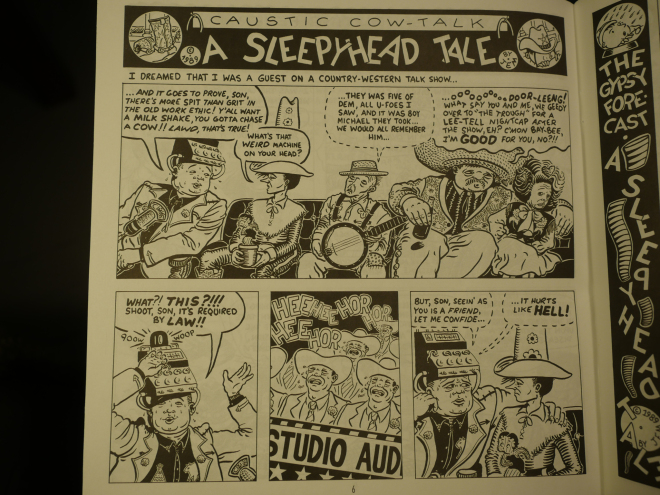 CAUSTIC COW-TALK
A SLEEPYHEAD TALE
BY J.W.
© 1989
I DREAMED THAT I WAS A GUEST ON A COUNTRY-WESTERN TALK SHOW...
...AND IT GOES TO PROVE, SON,
THERE'S MORE SPIT THAN GRIT IN
THE OLD WORK ETHIC! Y'ALL WANT
A MILK SHAKE, YOU GOTTA CHASE
A COW!! LAWD, THAT'S TRUE!
WHAT'S THAT
WEIRD MACHINE
ON YOUR HEAD?
...THEY WAS FIVE OF
DEM, ALL U-FOES I
SAW, AND IT WAS BOY
MICHAEL THEY TOOK...
WE WOULD ALL REMEMBER
HIM...
...OOOOOOOOOO DOOR-LEENG!
WHAT SAY YOU AND ME, WE GEDDY
OVER TO "THE TROUGH" FOR A
LEE-TELL NIGHTCAP AFTER
THE SHOW, EH? C'MON BAY-BEE,
I'M GOOD FOR YOU, NO?!!
WHAT?! THIS?!!!
SHOOT, SON, IT'S REQUIRED
BY LAW!!
HEE HEE HOR HOR
HEE HOR
STUDIO AUD
BUT, SON, SEEIN' AS
YOU IS A FRIEND,
LET ME CONFIDE...
...IT HURTS
LIKE HELL!
6
THE
GYPSY
FORE-
CAST
A SLEEPYHEAD
TALE
© 1989